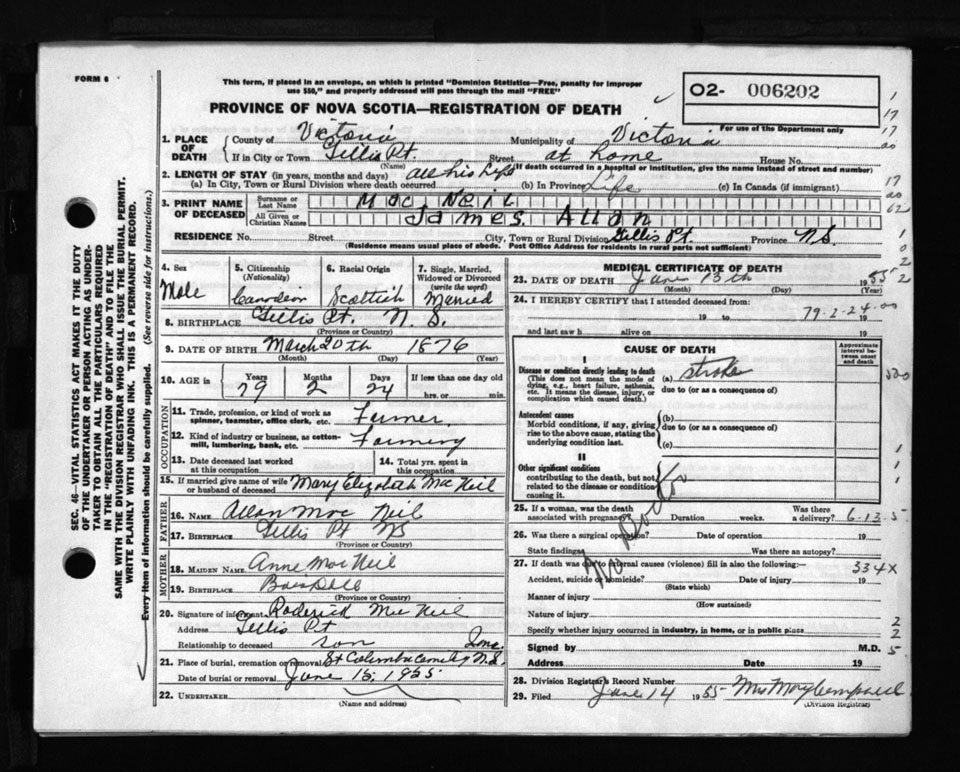 FORM 6
This form, if placed in an envelope, on which is printed "Dominion Statistics—Free, penalty for improper
use $50," and properly addressed will pass through the mail "FREE"
PROVINCE OF NOVA SCOTIA—REGISTRATION OF DEATH
02- 006202
For use of the Department only
SEC. 46—VITAL STATISTICS ACT MAKES IT THE DUTY
OF THE UNDERTAKER OR PERSON ACTING AS UNDER-
TAKER TO OBTAIN ALL THE PARTICULARS REQUIRED
IN THE "REGISTRATION OF DEATH" AND TO FILE THE
SAME WITH THE DIVISION REGISTRAR WHO SHALL ISSUE THE BURIAL PERMIT.
WRITE PLAINLY WITH UNFADING INK. THIS IS A PERMANENT RECORD.
Every item of information should be carefully supplied. (See reverse side for instructions.)
1. PLACE OF DEATH
County of Victoria Municipality of Victoria
If in City or Town Gillis Pt. Street at home House No.
(Name) (If death occurred in a hospital or institution, give the name instead of street and number)
2. LENGTH OF STAY (in years, months and days) all his life
(a) In City, Town or Rural Division where death occurred (b) In Province Life (c) In Canada (if immigrant)
3. PRINT NAME OF DECEASED
Surname or Last Name Mac Neil
All Given or Christian Names James Allan
RESIDENCE No. Street City, Town or Rural Division Gillis Pt. Province N.S.
(Residence means usual place of abode. Post Office Address for residents in rural parts not sufficient)
4. Sex Male
5. Citizenship (Nationality) Canadian
6. Racial Origin Scottish
7. Single, Married, Widowed or Divorced (write the word) Married
8. BIRTHPLACE Gillis Pt. N.S.
(Province or Country)
9. DATE OF BIRTH March 20th 1876
(Month) (Day) (Year)
10. AGE in Years 79 Months 2 Days 24 If less than one day old hrs. or min.
OCCUPATION
11. Trade, profession, or kind of work as spinner, teamster, office clerk, etc. Farmer
12. Kind of industry or business, as cotton-mill, lumbering, bank, etc. Farming
13. Date deceased last worked at this occupation
14. Total yrs. spent in this occupation
15. If married give name of wife or husband of deceased Mary Elizabeth Mac Neil
FATHER
16. NAME Allan Mac Neil
17. BIRTHPLACE Gillis Pt NS
(Province or Country)
MOTHER
18. MAIDEN NAME Anne Mac Neil
19. BIRTHPLACE
(Province or Country)
20. Signature of informant Roderick Mac Neil
Address Gillis Pt
Relationship to deceased son
21. Place of burial, cremation or removal St Columba Cemetery N.S.
Date of burial or removal June 15, 1955
22. UNDERTAKER
(Name and address)
MEDICAL CERTIFICATE OF DEATH
23. DATE OF DEATH June 13th 1955
(Month) (Day) (Year)
24. I HEREBY CERTIFY that I attended deceased from:
19 to 19
79-2-24-00
and last saw h alive on 19
CAUSE OF DEATH
Approximate interval between onset and death
I
Disease or condition directly leading to death (a) Stroke
(This does not mean the mode of dying, e.g., heart failure, asthenia, etc. It means the disease, injury, or complication which caused death.)
due to (or as a consequence of)
Antecedent causes (b)
Morbid conditions, if any, giving rise to the above cause, stating the underlying condition last.
due to (or as a consequence of)
(c)
II
Other significant conditions
contributing to the death, but not related to the disease or condition causing it.
No Doctor
25. If a woman, was the death associated with pregnancy Duration weeks. Was there a delivery?
6-13-5
26. Was there a surgical operation? Date of operation 19
State findings Was there an autopsy?
27. If death was due to external causes (violence) fill in also the following:— 334X
Accident, suicide or homicide? Date of injury 19
(State which)
Manner of injury
(How sustained)
Nature of injury
Specify whether injury occurred in industry, in home, or in public place
Signed by M.D.
Address Date 19
28. Division Registrar's Record Number
29. Filed June 14 1955 Mrs Mary Campbell
(Division Registrar)